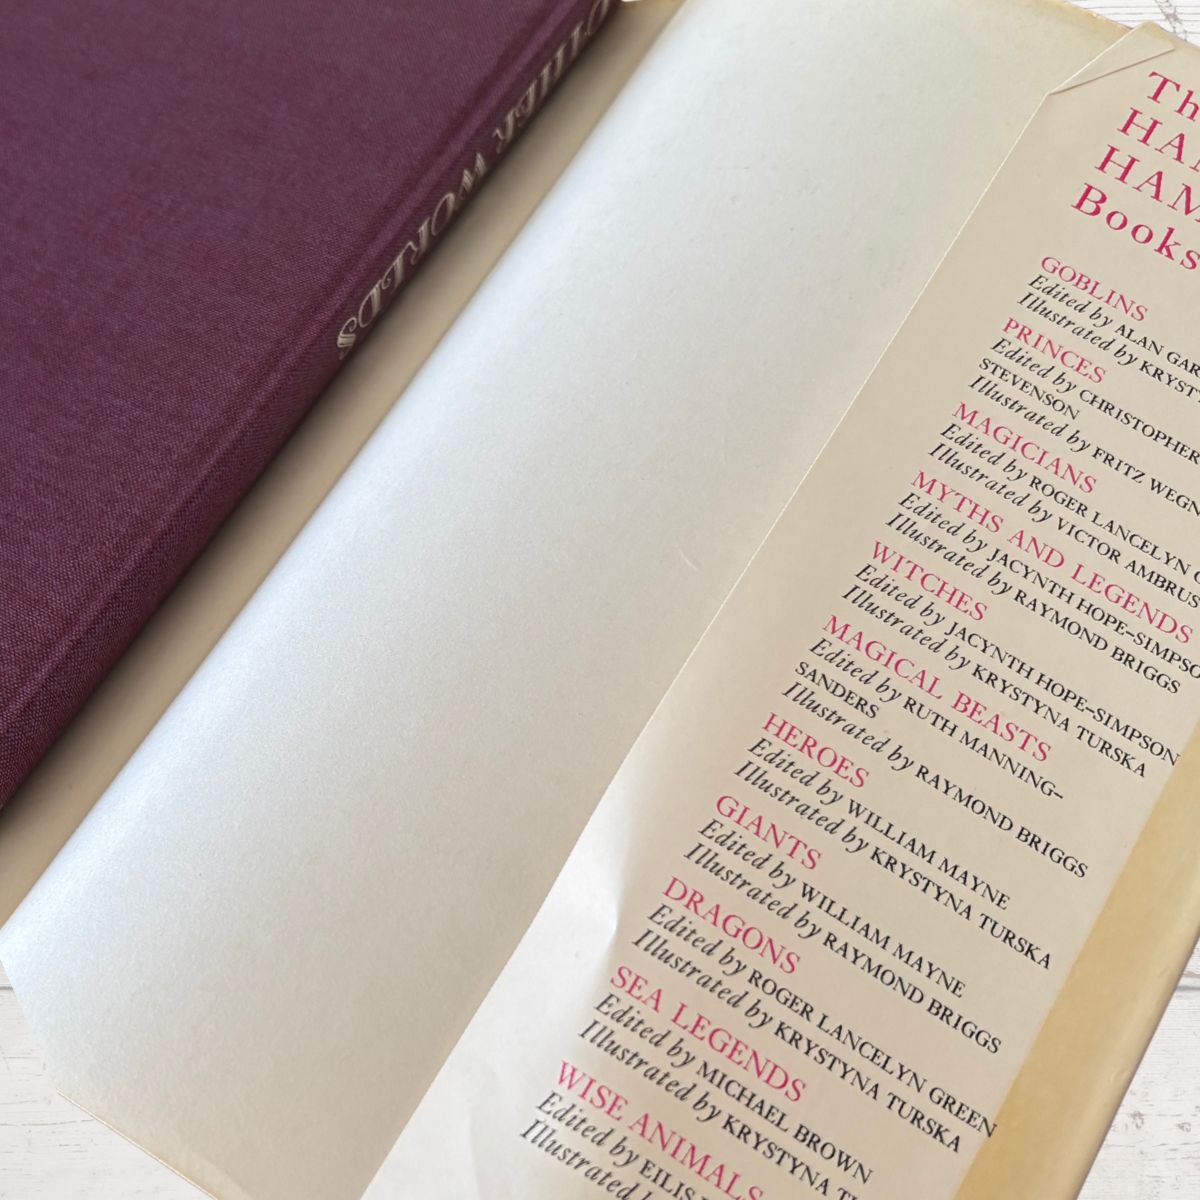 WORLDS
Books
GOBLINS
Edited by ALAN
Illustrated by
PRINCES
Edited by CHRISTOPHER
STEVENSON
Illustrated by FRITZ
MAGICIANS
Edited by ROGER LANCELYN
Illustrated by VICTOR AMBRUS
MYTHS AND LEGENDS
Edited by JACYNTH
Illustrated by RAYMOND BRIGGS
WITCHES
Edited by JACYNTH HOPE-SIMPSON
Illustrated by KRYSTYNA TURSKA
MAGICAL BEASTS
Edited by RUTH MANNING-
SANDERS
Illustrated by RAYMOND BRIGGS
HEROES
Edited by WILLIAM MAYNE
Illustrated by KRYSTYNA TURSKA
GIANTS
Edited by WILLIAM MAYNE
Illustrated by RAYMOND BRIGGS
DRAGONS
Edited by ROGER LANCELYN GREEN
Illustrated by KRYSTYNA TURSKA
SEA LEGENDS
Edited by MICHAEL BROWN
Illustrated by KRYSTYNA
WISE ANIMALS
Edited by EILIS
Illustrated